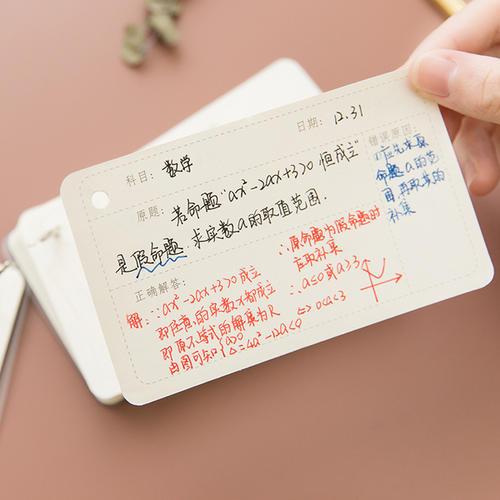 科目: 数学
日期: 12.31
原题: 若命题"ax²-2ax+3>0恒成立"
是假命题, 求实数a的取值范围.
错误原因
应先求原
命题a的范
围,再取其的
补集
正确解答:
解: ∵ax²-2ax+3>0成立
即任意的实数x都成立
即原不等式的解集为R
由图可知{a>0 Δ=4a²-12a<0
⇔ 0<a<3
∴原命题为假命题时
应取补集
∴a≤0或a≥3